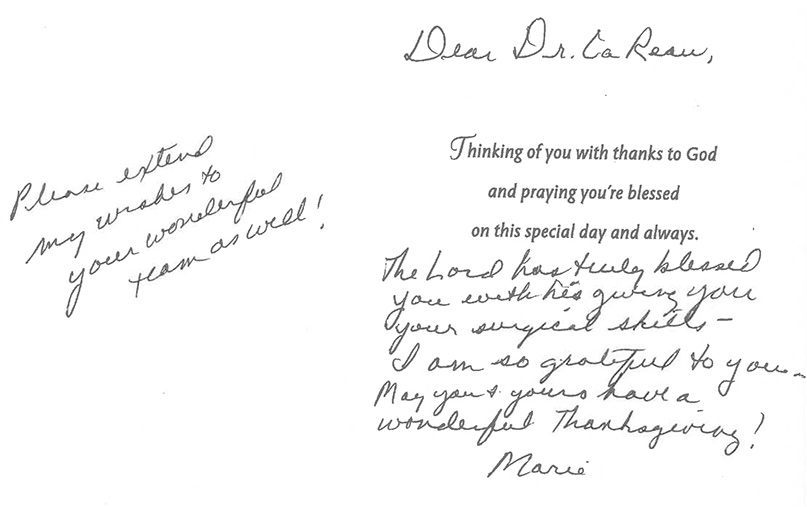 Dear Dr. LaReau,
Thinking of you with thanks to God
and praying you're blessed
on this special day and always.
The Lord has truly blessed
you with his giving you
your surgical skills –
I am so grateful to you –
May you & yours have a
wonderful Thanksgiving!
Marie
Please extend
my wishes to
your wonderful
team as well!